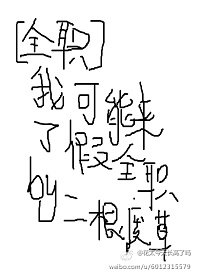 [全职]
我可能来
了假全职
by二根废草
weibo.com/u/6012315579